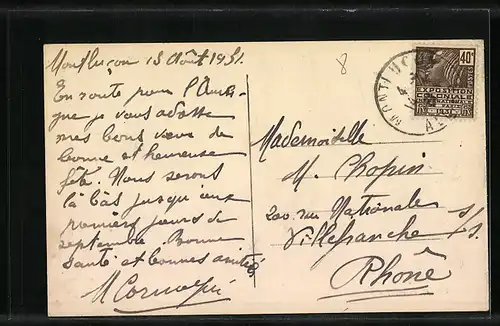 Montluçon 13 Août 1931.
En route pour l'Auver-
gne je vous adresse
mes bons vœux de
bonne et heureuse
fête. Nous serons
là bas jusqu'aux
premiers jours de
septembre. Bonne
santé et bonnes amitiés
M
8
Mademoiselle
M. Chopin
200 rue Nationale
Villefranche s/S.
Rhône
MONTLUÇON
40c
POSTES
EXPOSITION
COLONIALE
INTERNATIONALE
PARIS 1931